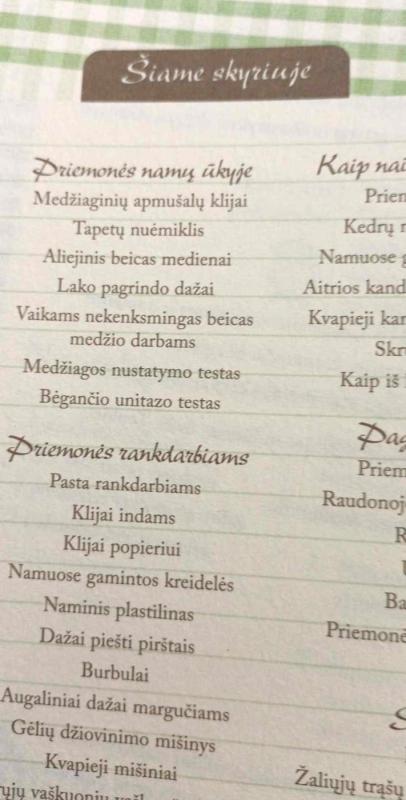 Šiame skyriuje
Priemonės namų ūkyje
Medžiaginių apmušalų klijai
Tapetų nuėmiklis
Aliejinis beicas medienai
Lako pagrindo dažai
Vaikams nekenksmingas beicas
medžio darbams
Medžiagos nustatymo testas
Bėgančio unitazo testas
Priemonės rankdarbiams
Pasta rankdarbiams
Klijai indams
Klijai popieriui
Namuose gamintos kreidelės
Naminis plastilinas
Dažai piešti pirštais
Burbulai
Augaliniai dažai margučiams
Gėlių džiovinimo mišinys
Kvapieji mišiniai
Kaip
Kedrų
Namuose
Aitrios
Kvapieji
Kaip iš
Žaliųjų trąšų